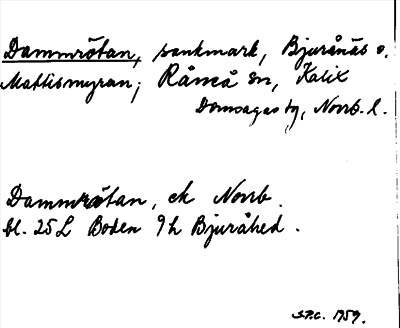 Dammrötan, sankmark, Bjurånäs o.
Mattismyran; Råneå sn, Kalix
Domsagas tg, Norrb. l.
Dammrötan, ek Norrb.
bl. 25L Boden 9h Bjuråhed.
1959.